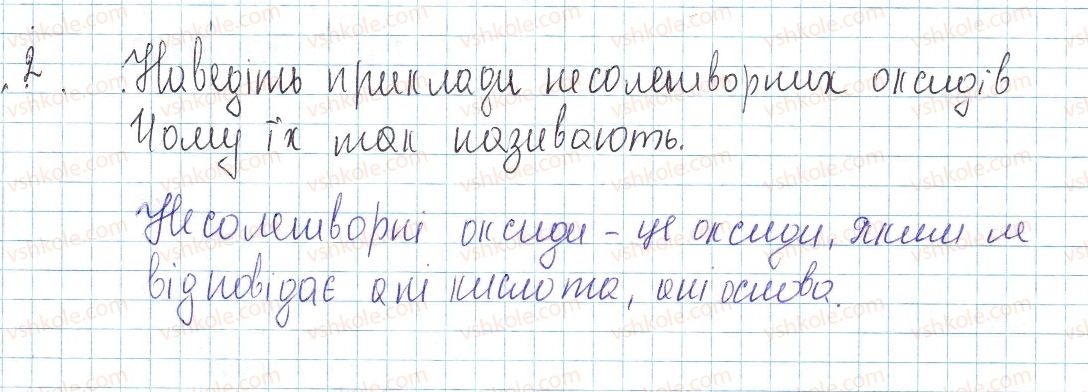 2. Наведіть приклади несолетворних оксидів
Чому їх так називають.
Несолетворні оксиди – це оксиди, яким не
відповідає ані кислота, ані основа.